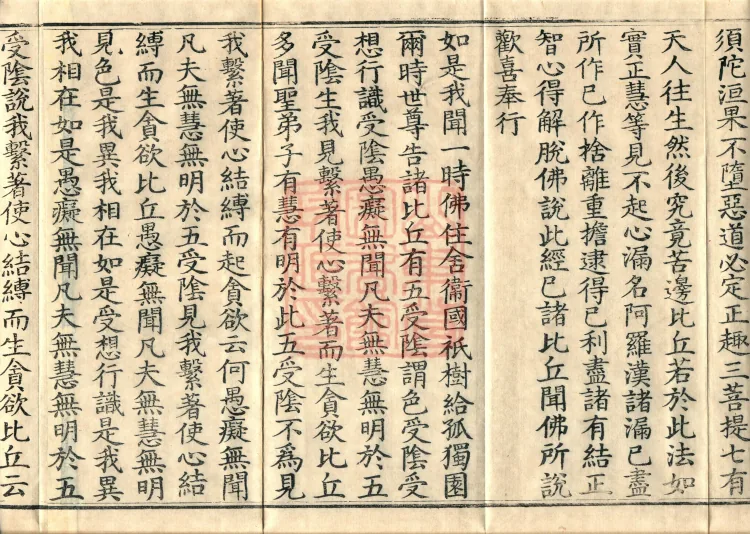 須陀洹果不墮惡道必定正趣三菩提七有
天人往生然後究竟苦邊比丘若於此法如
實正慧等見不起心漏名阿羅漢諸漏已盡
所作已作捨離重擔逮得已利盡諸有結正
智心得解脫佛說此經已諸比丘聞佛所說
歡喜奉行
如是我聞一時佛住舍衞國祇樹給孤獨園
爾時世尊告諸比丘有五受陰謂色受陰受
想行識受陰愚癡無聞凡夫無慧無明於五
受陰生我見繫著使心繫著而生貪欲比丘
多聞聖弟子有慧有明於此五受陰不爲見
我繫著使心結縛而起貪欲云何愚癡無聞
凡夫無慧無明於五受陰見我繫著使心結
縛而生貪欲比丘愚癡無聞凡夫無慧無明
見色是我異我相在如是受想行識是我異
我相在如是愚癡無聞凡夫無慧無明於五
受陰說我繫著使心結縛而生貪欲比丘云